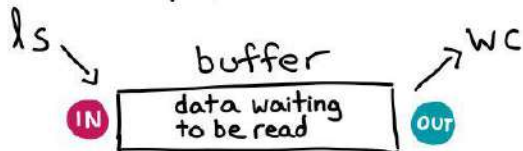 ls
buffer
wc
IN
data waiting
to be read
OUT